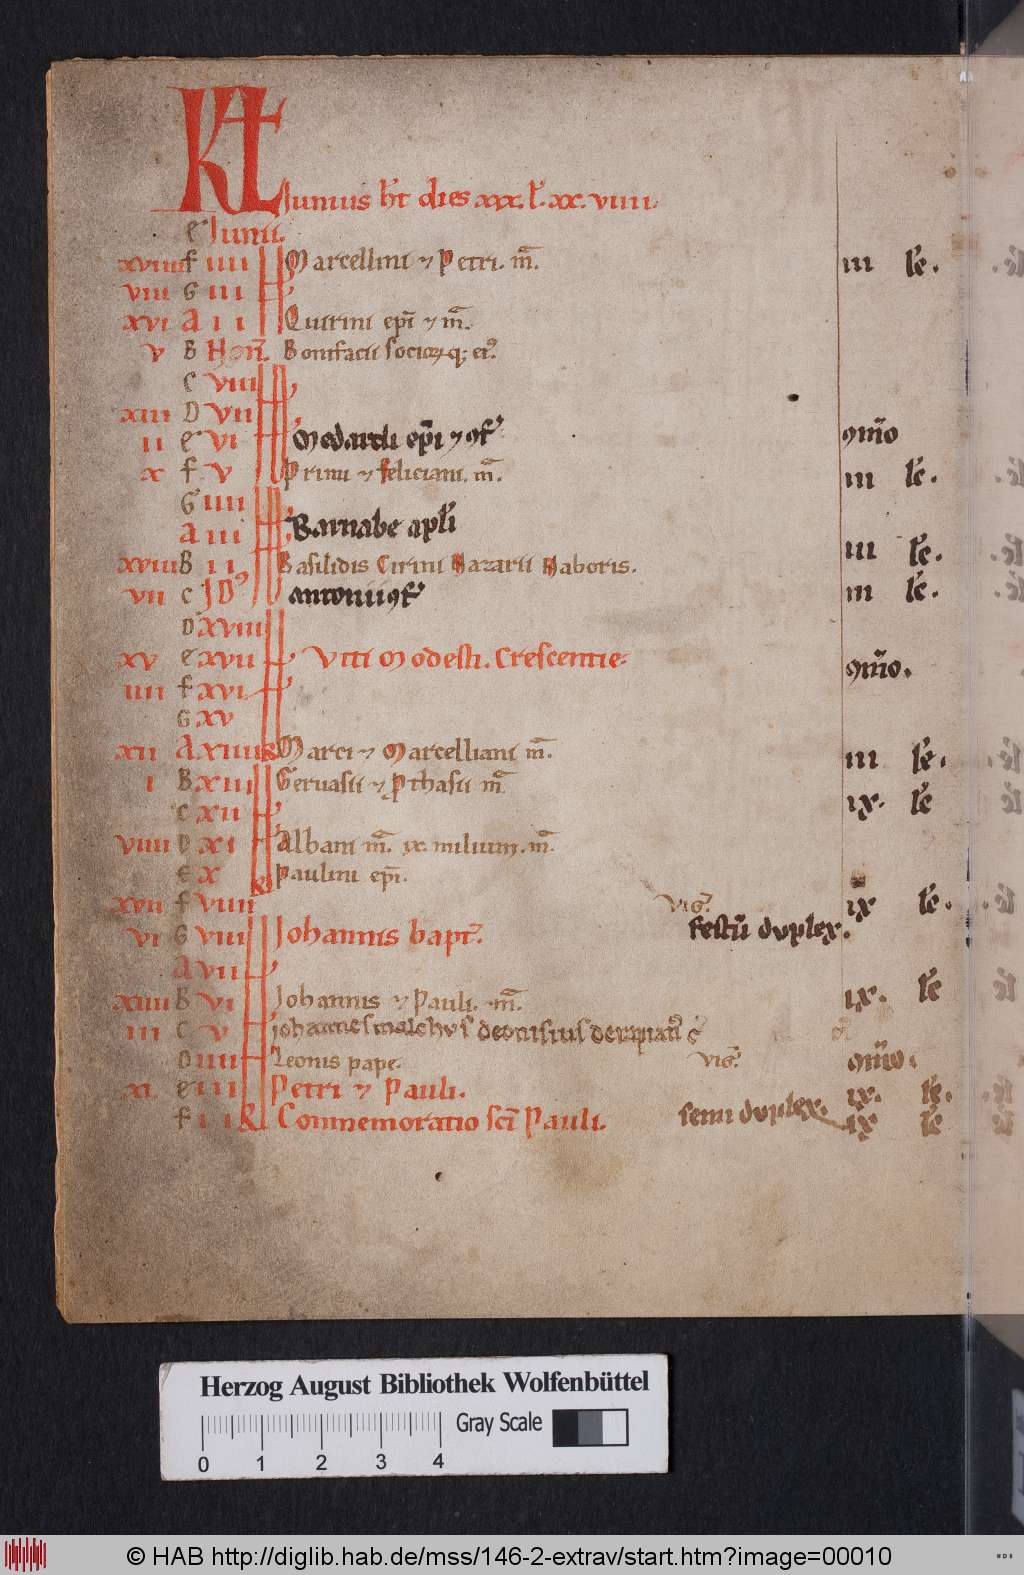 KL Iunius ħt dies xxx. l'. xx. viiii.
e Iunii.
xviiii f iiii N Marcellini ⁊ Petri. m̄. iii łe.
viii G iii
xvi A ii Quirini epī ⁊ m̄.
v B Non̄. Bonifacii socior̄q; ei9.
c viii
xiii D vii
ii e vi Medardi epī ⁊ 9f' 9m̄o
x f v Primi ⁊ feliciani. m̄. iii łe.
G iiii
A iii Barnabe apłi iii łe.
xviii B ii Basilidis Cirini Nazarii Naboris.
vii c ID9 antonii 9f' iii łe.
D xviii
xv e xvii Viti Modesti. Crescentie. 9m̄o.
iiii f xvi
G xv
xii A xiiii Marci ⁊ Marcelliani m̄. iii łe.
i B xiii Geruasii ⁊ Pthasii m̄ ix. łe
c xii
viiii D xi Albani m̄. ix. milium. m̄.
e x Paulini epī.
xvii f viiii viḡ. ix łe.
vi G viii Johannis bapt̄. festū duplex.
A vii
xiiii B vi Johannis ⁊ Pauli. m̄. ix. łe
iii c v iohannes malchus deonisius
D iiii Leonis pape. viḡ. 9m̄o.
xi e iii Petri ⁊ Pauli. ix. łe.
f ii Commemoratio scī Pauli. semi duplex. ix łe
Herzog August Bibliothek Wolfenbüttel
Gray Scale
0 1 2 3 4
© HAB http://diglib.hab.de/mss/146-2-extrav/start.htm?image=00010